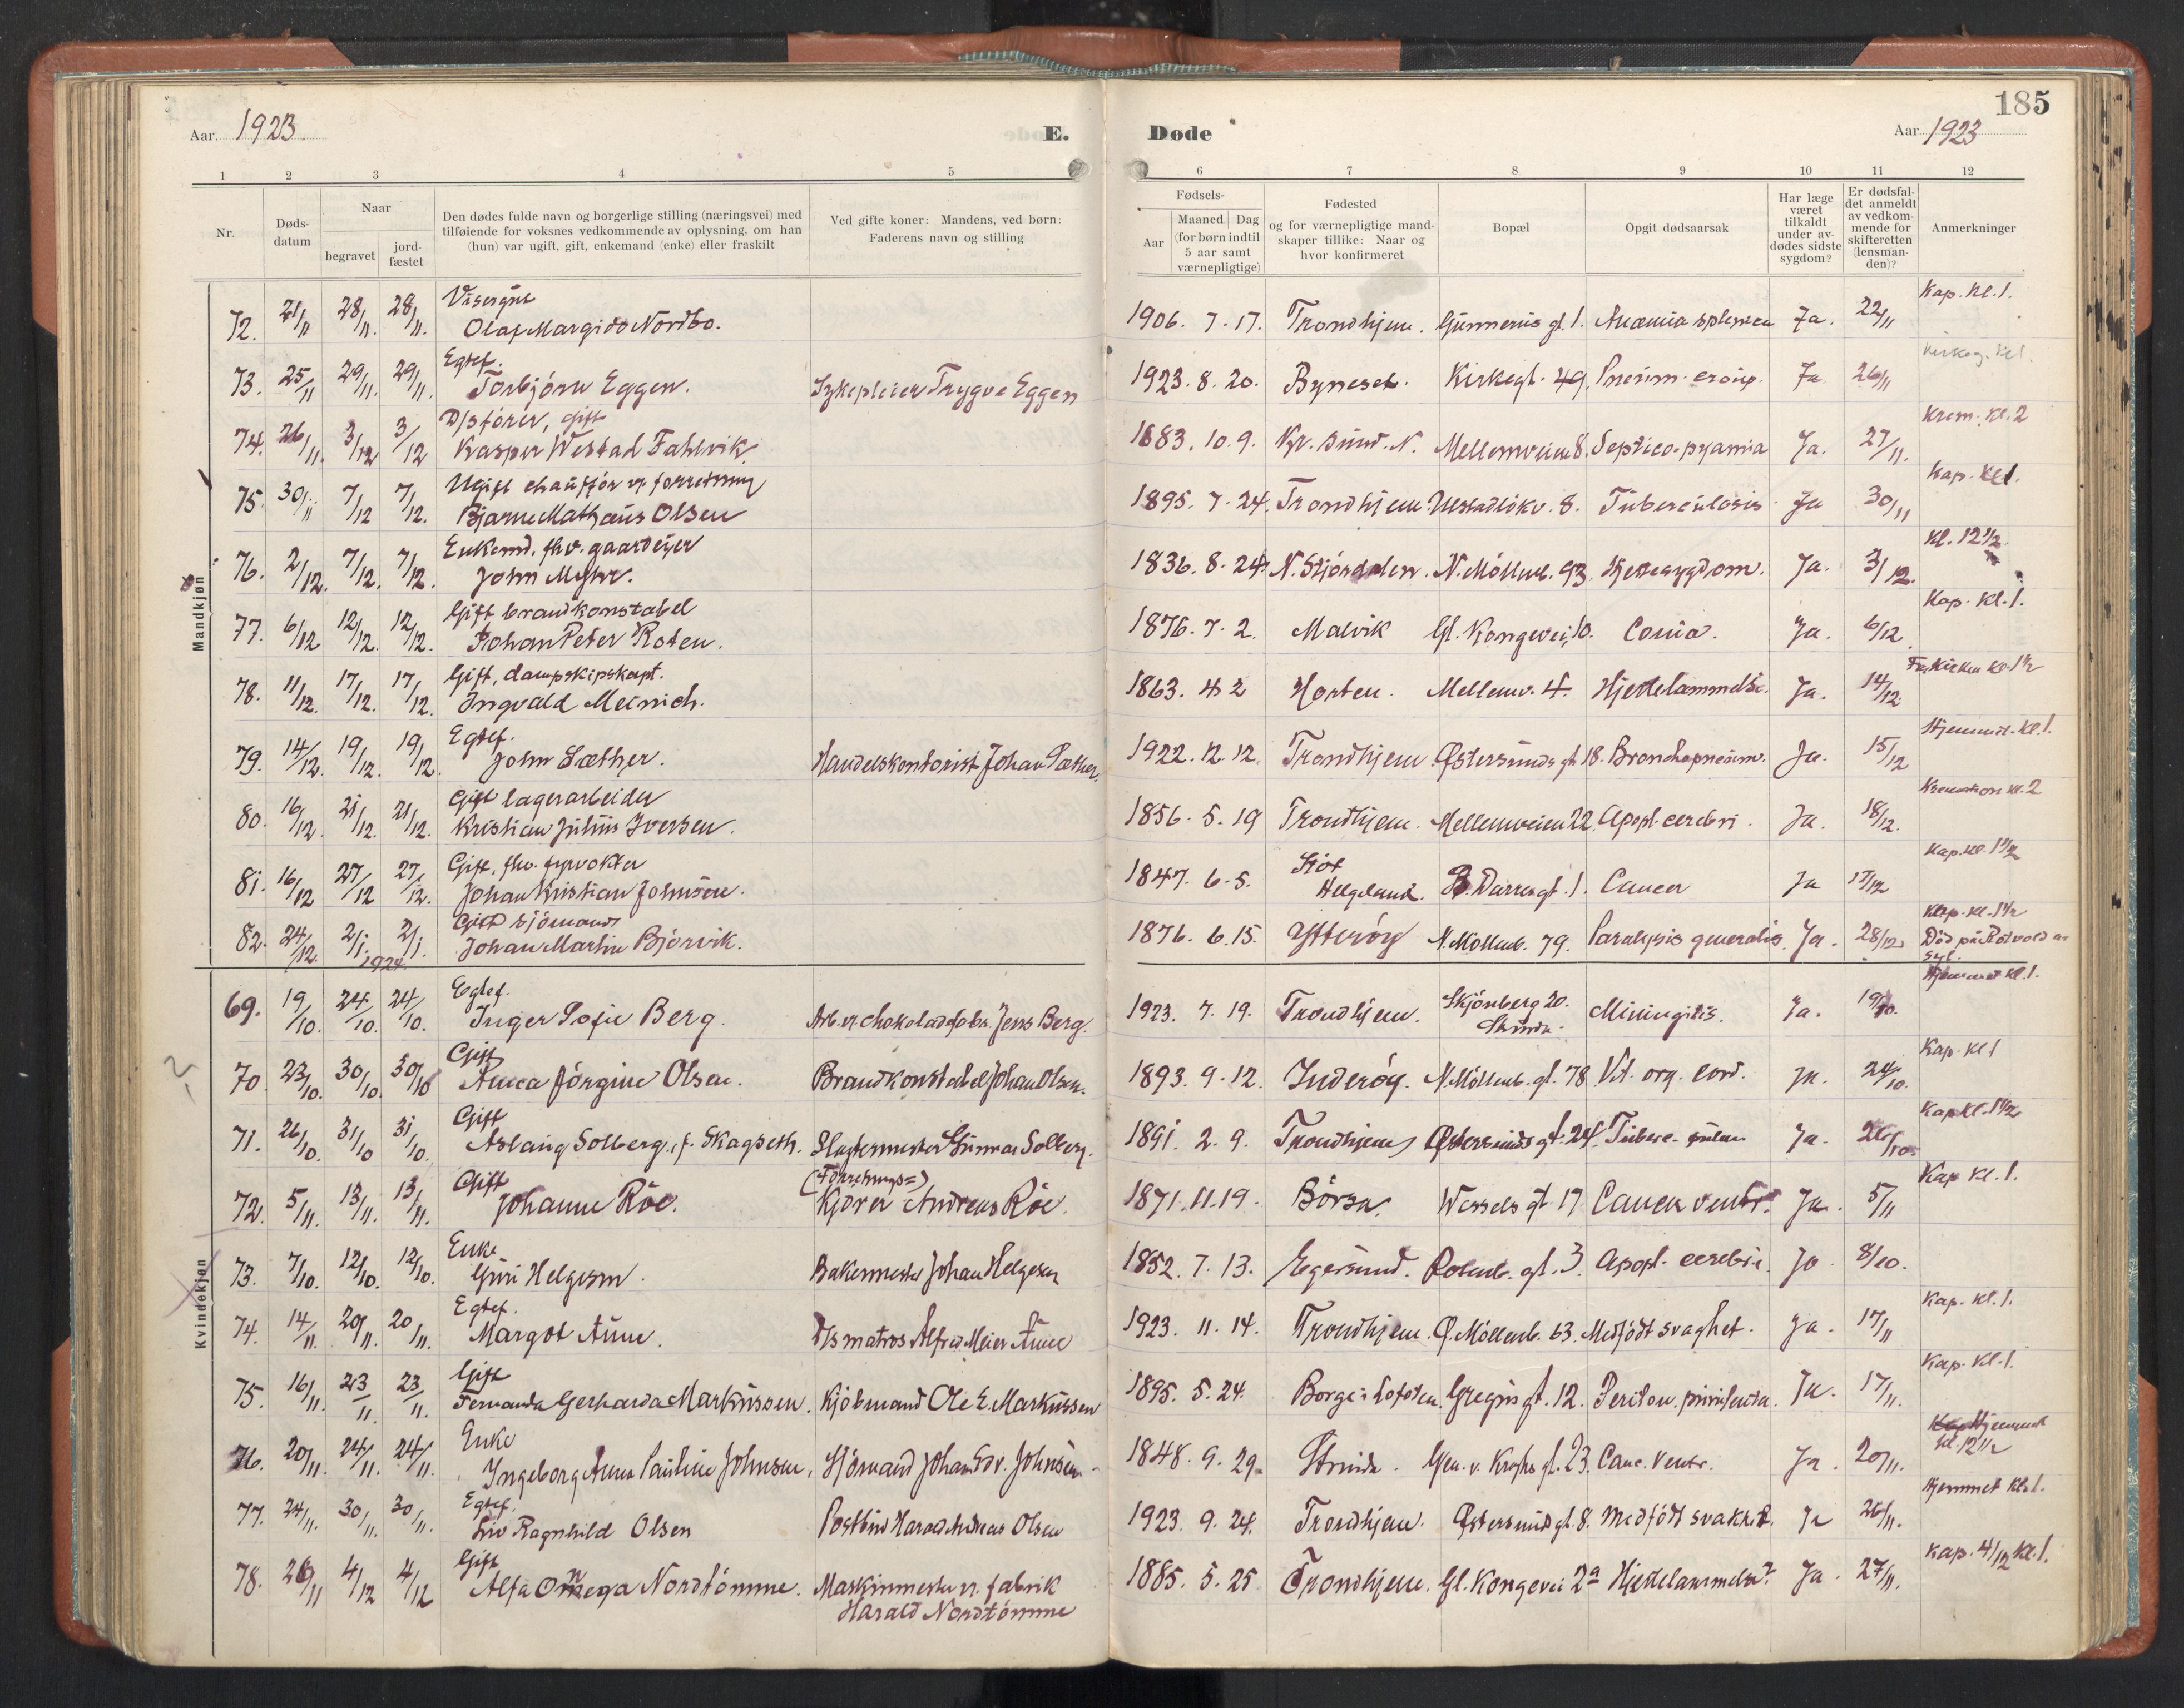 Aar. 1923. E.
Døde Aar 1923 185
1 2 3 4 5 6 7 8 9 10 11 12
Nr.
Døds-
datum
Naar
begravet
jord-
fæstet
Den dødes fulde navn og borgerlige stilling (næringsvei) med
tilføiende for voksnes vedkommende av oplysning, om han
(hun) var ugift, gift, enkemand (enke) eller fraskilt
Ved gifte koner: Mandens, ved børn:
Faderens navn og stilling
Fødsels-
Aar
Maaned Dag
(for børn indtil
5 aar samt
værnepligtige)
Fødested
og for værnepligtige mand-
skaper tillike: Naar og
hvor konfirmeret
Bopæl
Opgit dødsaarsak
Har læge
været
tilkaldt
under av-
dødes sidste
sygdom?
Er dødsfal-
det anmeldt
av vedkom-
mende for
skifteretten
(lensman-
den)?
Anmerkninger
Mandkjøn
Visergut Kap. Kl. 1.
72. 21/11 28/11. 28/11. Olaf Margido Nordbo. 1906. 7. 17. Trondhjem. Gunnerus gt. 1. Anæmia splenica Ja. 22/11
Egtef. Kirkeg. Kl 1.
73. 25/11 29/11. 29/11. Torbjörn Eggen. Sykepleier Trygve Eggen 1923. 8. 20. Byneset. Kirkegt. 49. Pneum. croup. Ja 26/11
D/sförer, gift Krem. Kl. 2
74. 26/11. 3/12 3/12 Kasper Westad Fahlvik 1883. 10. 9. Kr. sund. N. Mellemveien 8. Septico-pyæmia Ja. 27/11.
Ugift chaufför v. forretning Kap. Kl 1.
75. 30/11 7/12 7/12. Bjarne Mathæus Olsen 1895. 7. 24. Trondhjem. Ulstadlökv. 8. Tuberculosis. Ja 30/11
Enkemd. fhv. gaardeier Kl. 12 1/2
76. 2/12. 7/12. 7/12. John Myhr. 1836. 8. 24. N. Stjördalen. N. Möllenb. 93. Hjertesygdom. Ja. 3/12.
Gift brandkonstabel Kap. Kl. 1.
77. 6/12 12/12. 12/12. Johan Peter Roten. 1876. 7. 2. Malvik Gl. Kongevei 10. Coma. Ja. 6/12
Gift, dampskipskapt. Fr. Kirken Kl. 1 1/2
78. 11/12. 17/12. 17/12. Ingvald Meinich. 1863. 4. 2 Horten. Mellemv. 4. Hjertelammelse. Ja. 14/12
Egtef. Hjemmet. Kl. 1.
79. 14/12. 19/12. 19/12. John Sæther. Handelskontorist Johan Sæther. 1922. 12. 12. Trondhjem Østersunds gt. 18. Bronchopneum. Ja. 15/12
Gift lagerarbeider Kremation kl. 2
80. 16/12. 21/12. 21/12. Kristian Julius Iversen. 1856. 5. 19 Trondhjem. Mellemveien 22. Apopl. cerebri. Ja. 18/12.
Gift, fhv. fyrvokter Kap. Kl. 1 1/2
81. 16/12 27/12 27/12. Johan Kristian Johnsen. 1847. 6. 5. Stöt Helgeland. B. Darresgt. 1. Cancer Ja 17/12
Gift sjömand Kap. Kl. 1 1/2
82. 24/12. 2/1. 1924 2/1. Johan Martin Björvik. 1876. 6. 15. Ytteröy N. Möllenb. 79. Paralysis generalis. Ja. 28/12. Död på Rotvold a-
syl.
Kvindekjøn
Egtef. Hjemmet Kl. 1.
69. 19/10. 24/10. 24/10. Inger Sofie Berg. Arb. v. chokoladefabr. Jens Berg. 1923. 7. 19. Trondhjem. Skjönberg 20. Strinda. Miningitis. Ja. 19/10.
Gift Kap. Kl 1
70. 23/10. 30/10. 30/10 Anna Jörgine Olsen. Brandkonstabel Johan Olsen. 1893. 9. 12. Inderöy. N. Möllenb. gt. 78 Vit. org. cord. Ja. 24/10.
Gift Kap Kl. 1 1/2
71. 26/10. 31/10 31/10. Aslaug Solberg, f. Skagseth. Slagtermester Gunnar Solberg. 1891. 2. 9. Trondhjem Østersunds gt. 24. Tuberc. pulm Ja. 26/10.
Gift (Forretnings=) Kap Kl. 1.
72. 5/11. 13/11. 13/11. Johanne Röe. Kjörer Andreas Röe. 1871. 11. 19. Börsa. Wessels gt. 17 Cancer ventr. Ja. 5/11
Enke
73. 7/10. 12/10. 12/10. Guri Helgesen. Bakermester Johan Helgesen 1852. 7. 13. Egersund. Rosenb. gt. 3. Apopl. cerebri. Ja 8/10.
Egtef. Kap. Kl. 1.
74. 14/11. 20/11. 20/11. Margot Aune. D/s matros Alfred Meier Aune 1923. 11. 14. Trondhjem. Ø. Möllenb. 63. Medfödt svaghet. Ja. 17/11
Gift Kap. Kl. 1.
75. 16/11. 23/11. 23/11. Fernanda Gerharda Markussen. Kjöbmand Ole E. Markussen 1895. 5. 24. Borge i Lofoten. Gregus gt. 12. Periton. Ja. 17/11.
Enke Kap Hjemmet
Kl. 12 1/2
76. 20/11. 24/11. 24/11. Ingeborg Anna Pauline Johnsen, Sjömand Johan Edv. Johnsen. 1848. 9. 29. Strinda. Gen. v. Kroghs gt. 23. Canc. ventr. Ja. 20/11.
Egtef. Hjemmet Kl. 1.
77. 24/11. 30/11. 30/11. Liv Ragnhild Olsen Postbud Harald Andreas Olsen 1923. 9. 24. Trondhjem. Østersunds gt. 8. Medfödt svakhet. Ja 26/11.
Gift Kap. 4/12 Kl. 1.
78. 26/11 4/12 4/12 Alfa Omega Nordtömme. Maskinmester v. fabrik 1885. 5. 25 Trondhjem. Gl. Kongevei 2a Hjertelammelse? Ja. 27/11.
Harald Nordtömme